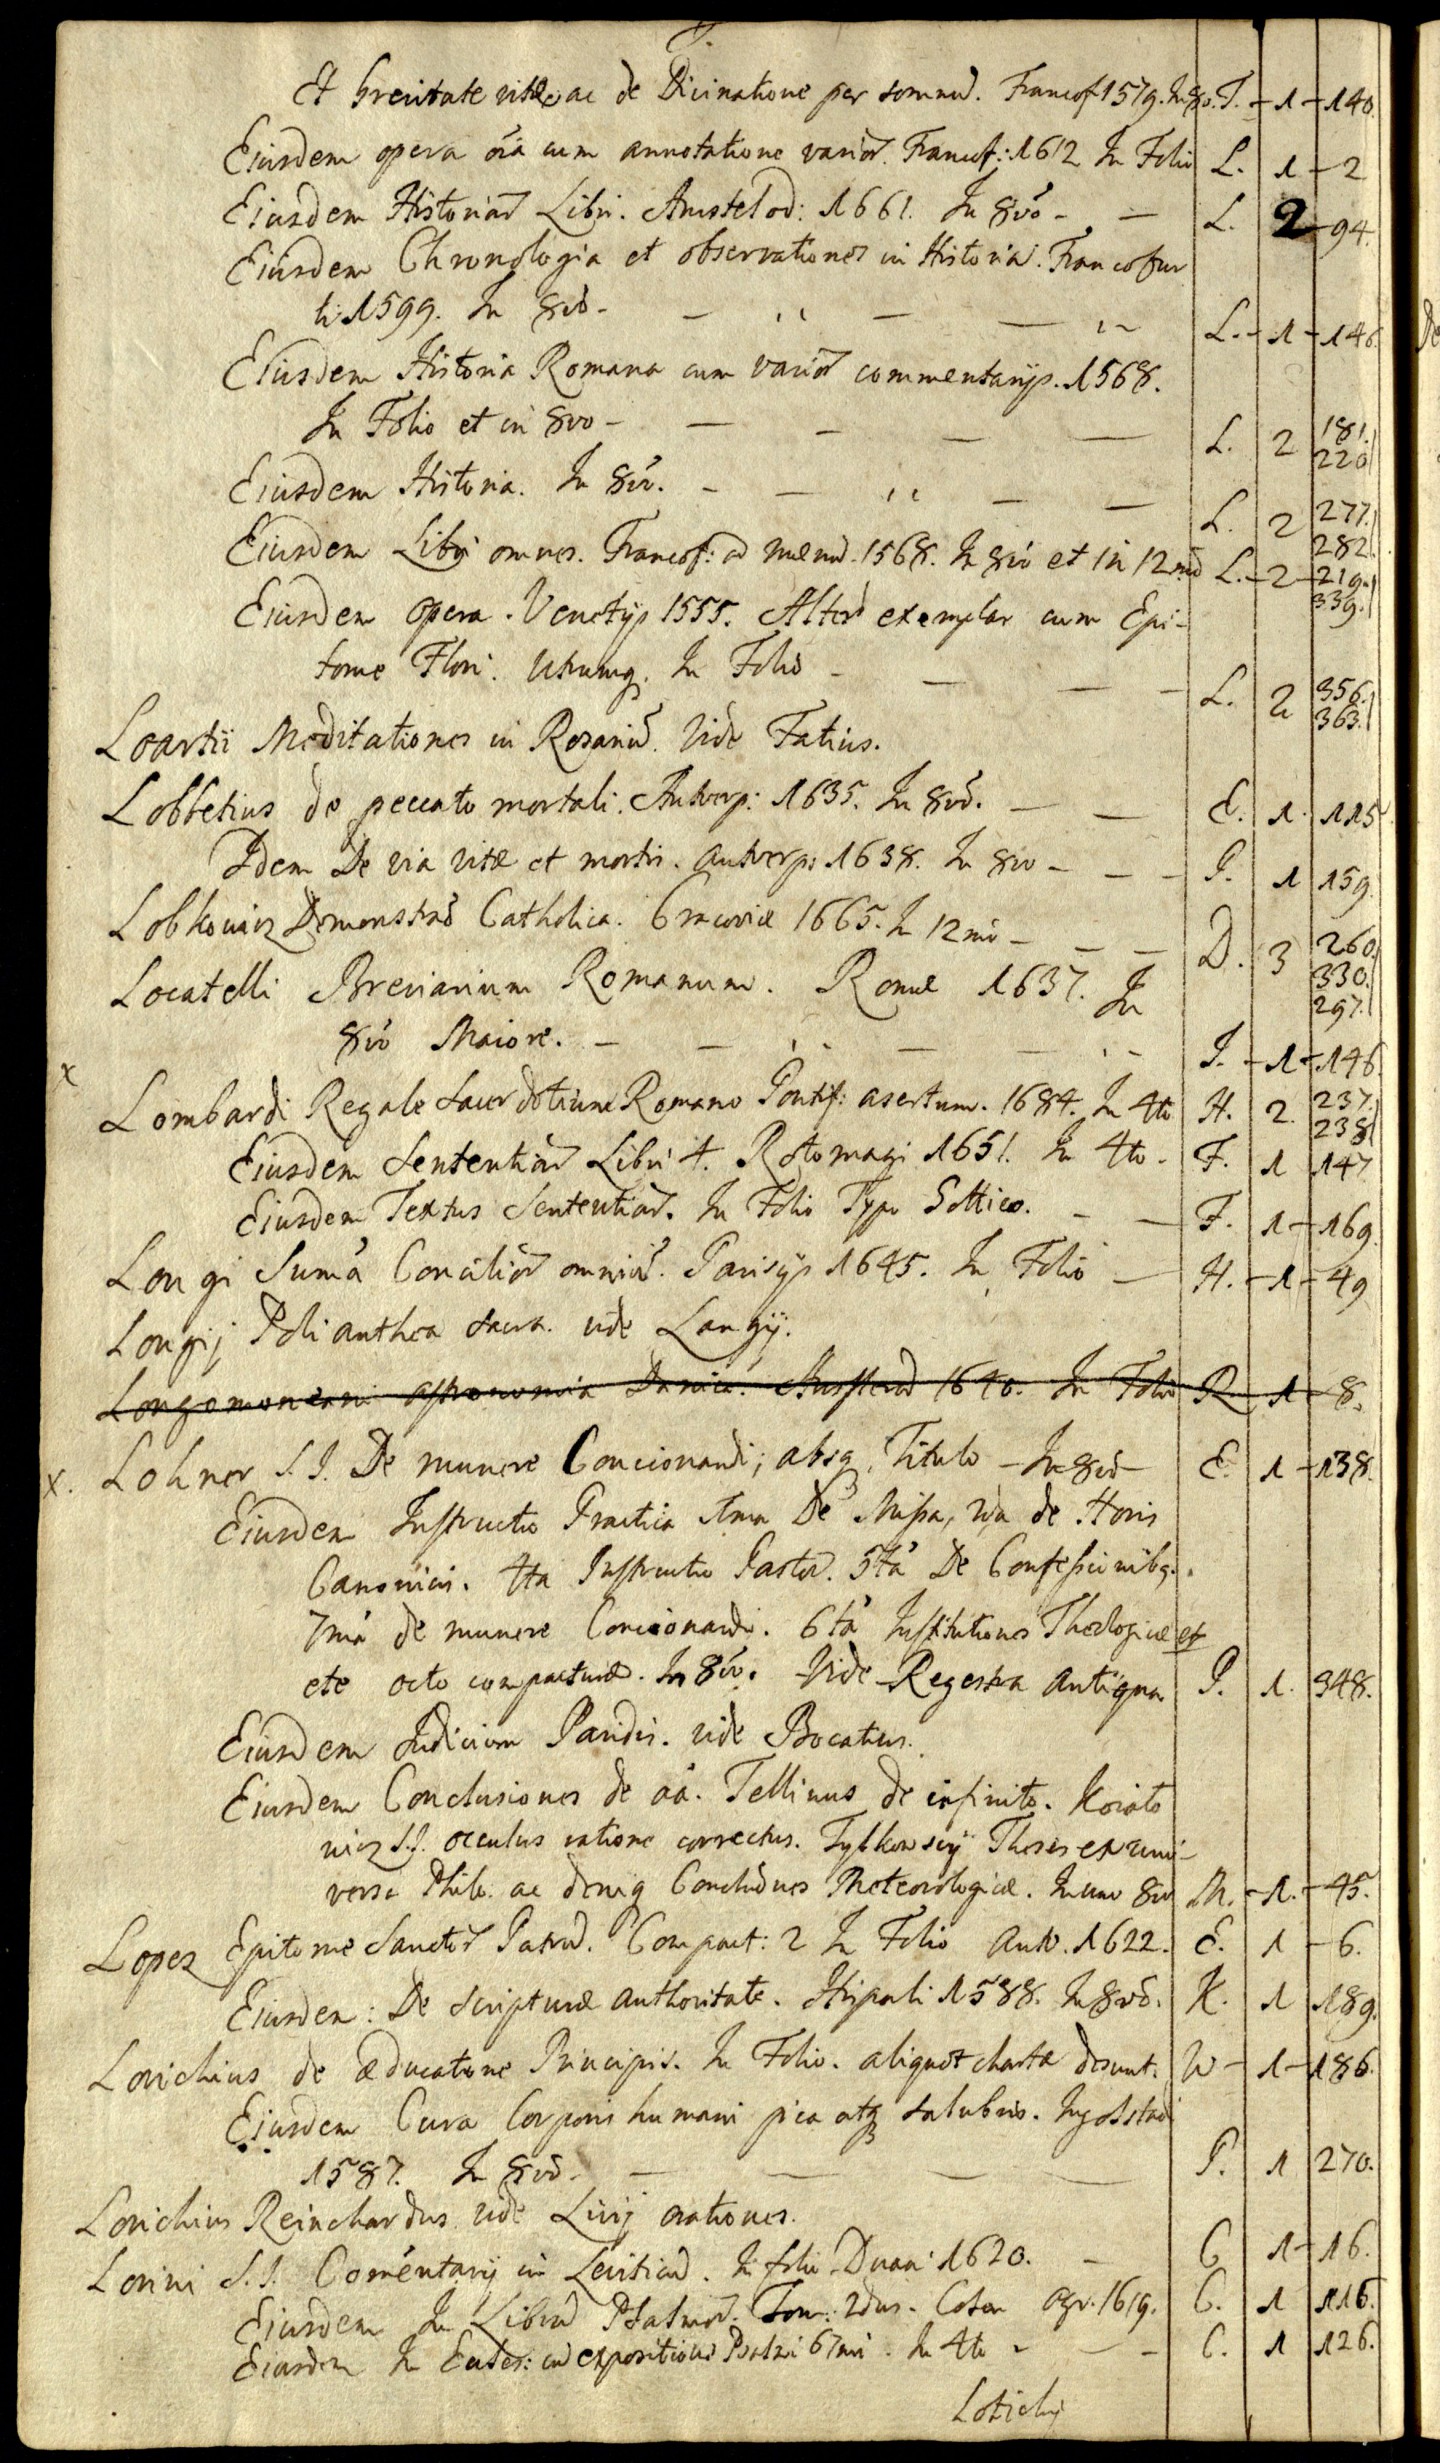 Et brevitate vitæ ac de Divinatione per somnū. Francof 1579. In 8o. T. - 1 - 140.
Eiusdem opera oīa cum annotatione varior. Francof: 1612 In Folio L. 1 - 2
Eiusdem Historiar Libri. Amstelod: 1661. In 8vo - - L. 2 - 94.
Eiusdem Chronologia et observationes in Historia. Francofur
ti 1599. In 8vo - - - - L. - 1 - 146.
Eiusdem Historia Romana cum varior commentarijs. 1568.
In Folio et in 8vo - - - - - L. 2 181. 220
Eiusdem Historia. In 8vo. - - - - L. 2 277. 282.
Eiusdem Libri omnes. Francof: ad mænū. 1568. In 8vo et in 12mo L. - 2 - 219. 339.
Eiusdem opera. Venetijs 1555. Alterū exemplar cum Epi-
tome Flori. Utrumq. In Folio - - - - L. 2 356. 363.
Loartii Meditationes in Rosariū. Vide Fatius.
Lobbetius de peccato mortali. Antverp: 1635. In 8vo. - - E. 1. 115
Idem De via vitæ et mortis. Antverp: 1638. In 8vo - - - P. 1 159.
Lobkowicz Demonstrao Catholica. Cracoviæ 1665. In 12mo - - - D. 3 260. 330. 297.
Locatelli Breviarium Romanum. Romæ 1637. In
8vo Maiore. - - - - - I. - 1 - 146.
x Lombardi Regale Sacerdotium Romano Pontif: asertum. 1684. In 4to H. 2. 237. 238
Eiusdem Sententiar Libri 4. Rotomagi 1651. In 4to - F. 1 147
Eiusdem Textus Sententiar. In Folio Typo Gottico. - - F. 1 - 169.
Longi Suma Concilior omniū. Parisijs 1645. In Folio - H. - 1 - 49
Longij Polianthea Sacra. vide Langij.
Longomonteani astronomia Danica. Amsterod 1640. In Folio R - 1 - 8.
x. Lohner S. J. De munere Concionandi; absq. Titulo - In 8vo - E. 1 - 138.
Eiusdem Instructio Practica 1ma De Missa, 2da de Horis
Canonicis. 4ta Instructio Pastor. 5ta De Confessionibq.
7ma de munere Concionandi. 6ta Institutiones Theologicæ et
etc octo compacturæ. In 8vo. Vide Regestra antiqua P. 1. 348.
Eiusdem Judicium Paridis. vide Bocatius.
Eiusdem Conclusiones de aa. Tellinus de infinito. Koiato
wicz S.J. occulus ratione correctus. Tylkowscij Theses ex uni-
versa Philo. ac deniq Conclusiones Meteorologicæ. In uno 8vo M. - 1. - 45.
Lopez Epitome Sanctor Patrū. Compact: 2 In Folio Antv. 1622. E. 1 - 6.
Eiusdem: De Scripturæ authoritate. Hispali 1588. In 8vo. K. 1 189.
Lorichius de æducatione Principis. In Folio. aliquot chartæ desunt. W - 1 - 186.
Eiusdem Cura Corporis humani pica atq salubris. Ingolstad
1587. In 8vo. - - - - P. 1 270.
Lorichius Reinchardus vide Livij orationes.
Lorini S. J. Comentarij in Leviticū. In folio Duaci 1620. - C 1 - 16.
Eiusdem In Librū Psalmor. Tom: 2dus. Colon Agr. 1619. C. 1 116.
Eiusdem In expositione Psalmi 67mi. In 4to - - - C. 1 126.
Lotichij